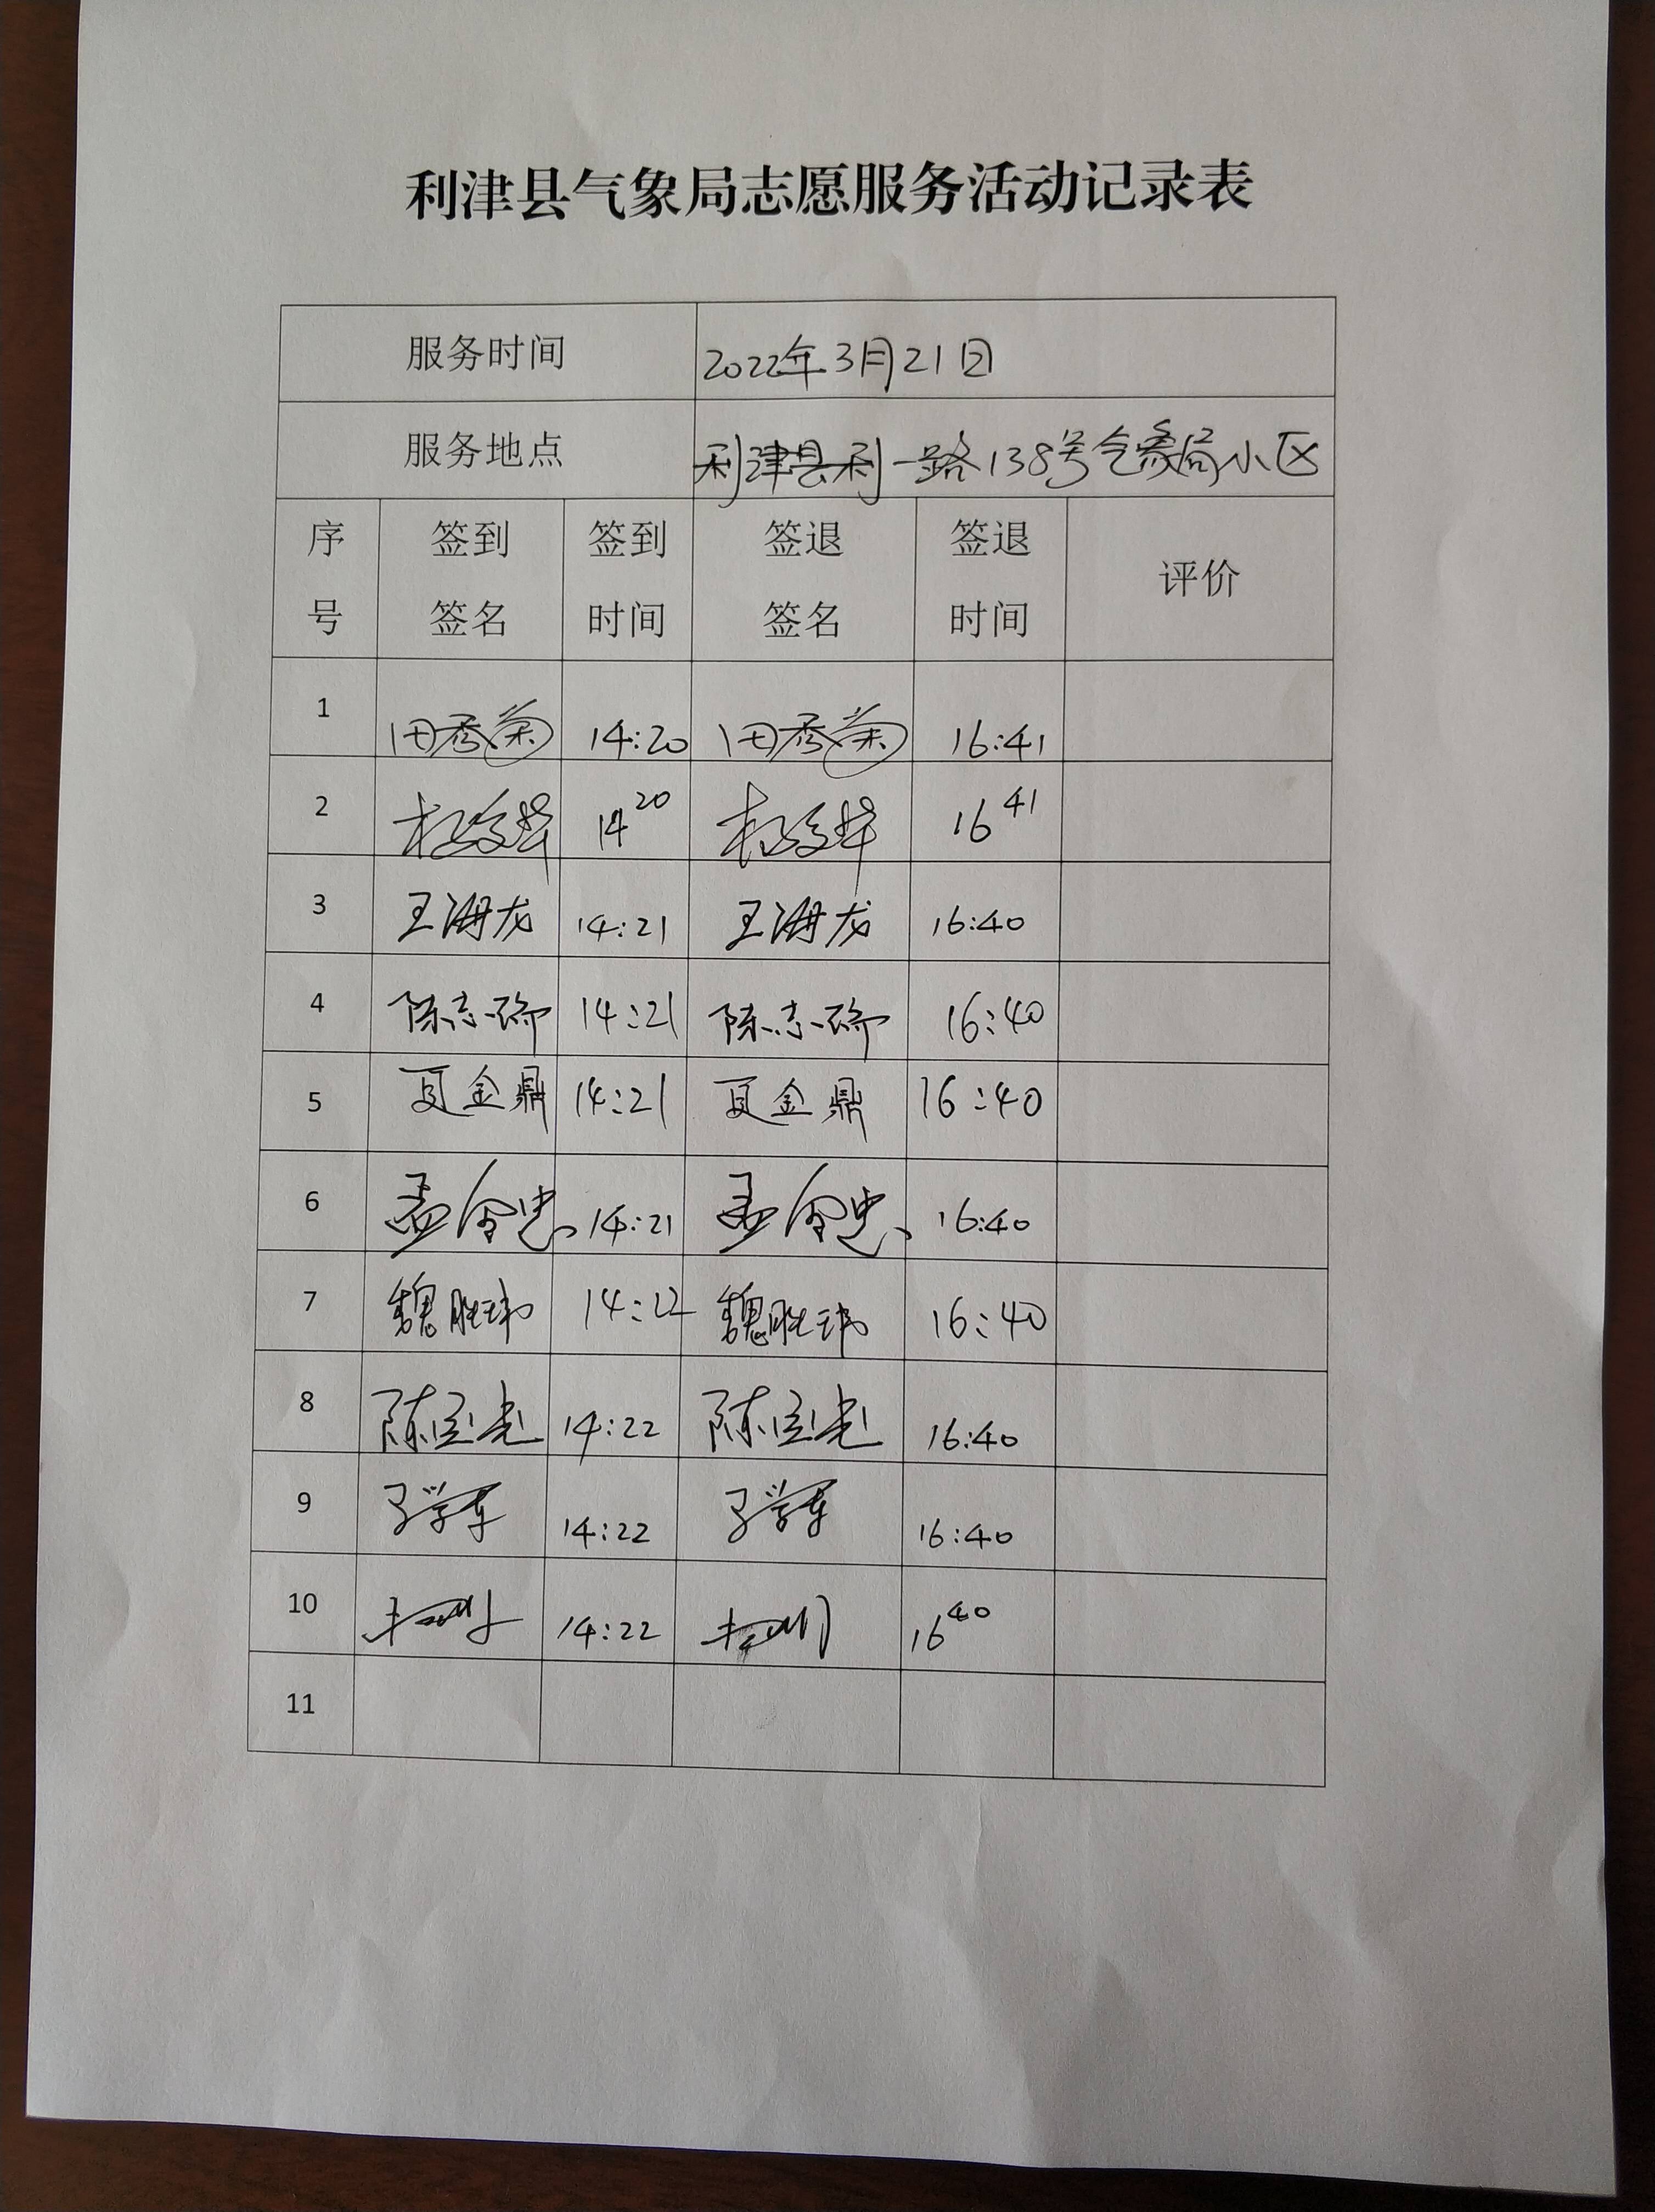 利津县气象局志愿服务活动记录表
服务时间 2022年3月21日
服务地点 利津县利一路138号气象局小区
序号 签到签名 签到时间 签退签名 签退时间 评价
1 田秀菊 14:20 田秀菊 16:41
2 14 20 16 41
3 王海龙 14:21 王海龙 16:40
4 陈志 14:21 陈志 16:40
5 夏金鼎 14:21 夏金鼎 16:40
6 孟令忠 14:21 孟令忠 16:40
7 魏胜 14:22 魏胜 16:40
8 陈宝光 14:22 陈宝光 16:40
9 14:22 16:40
10 14:22 16 40
11